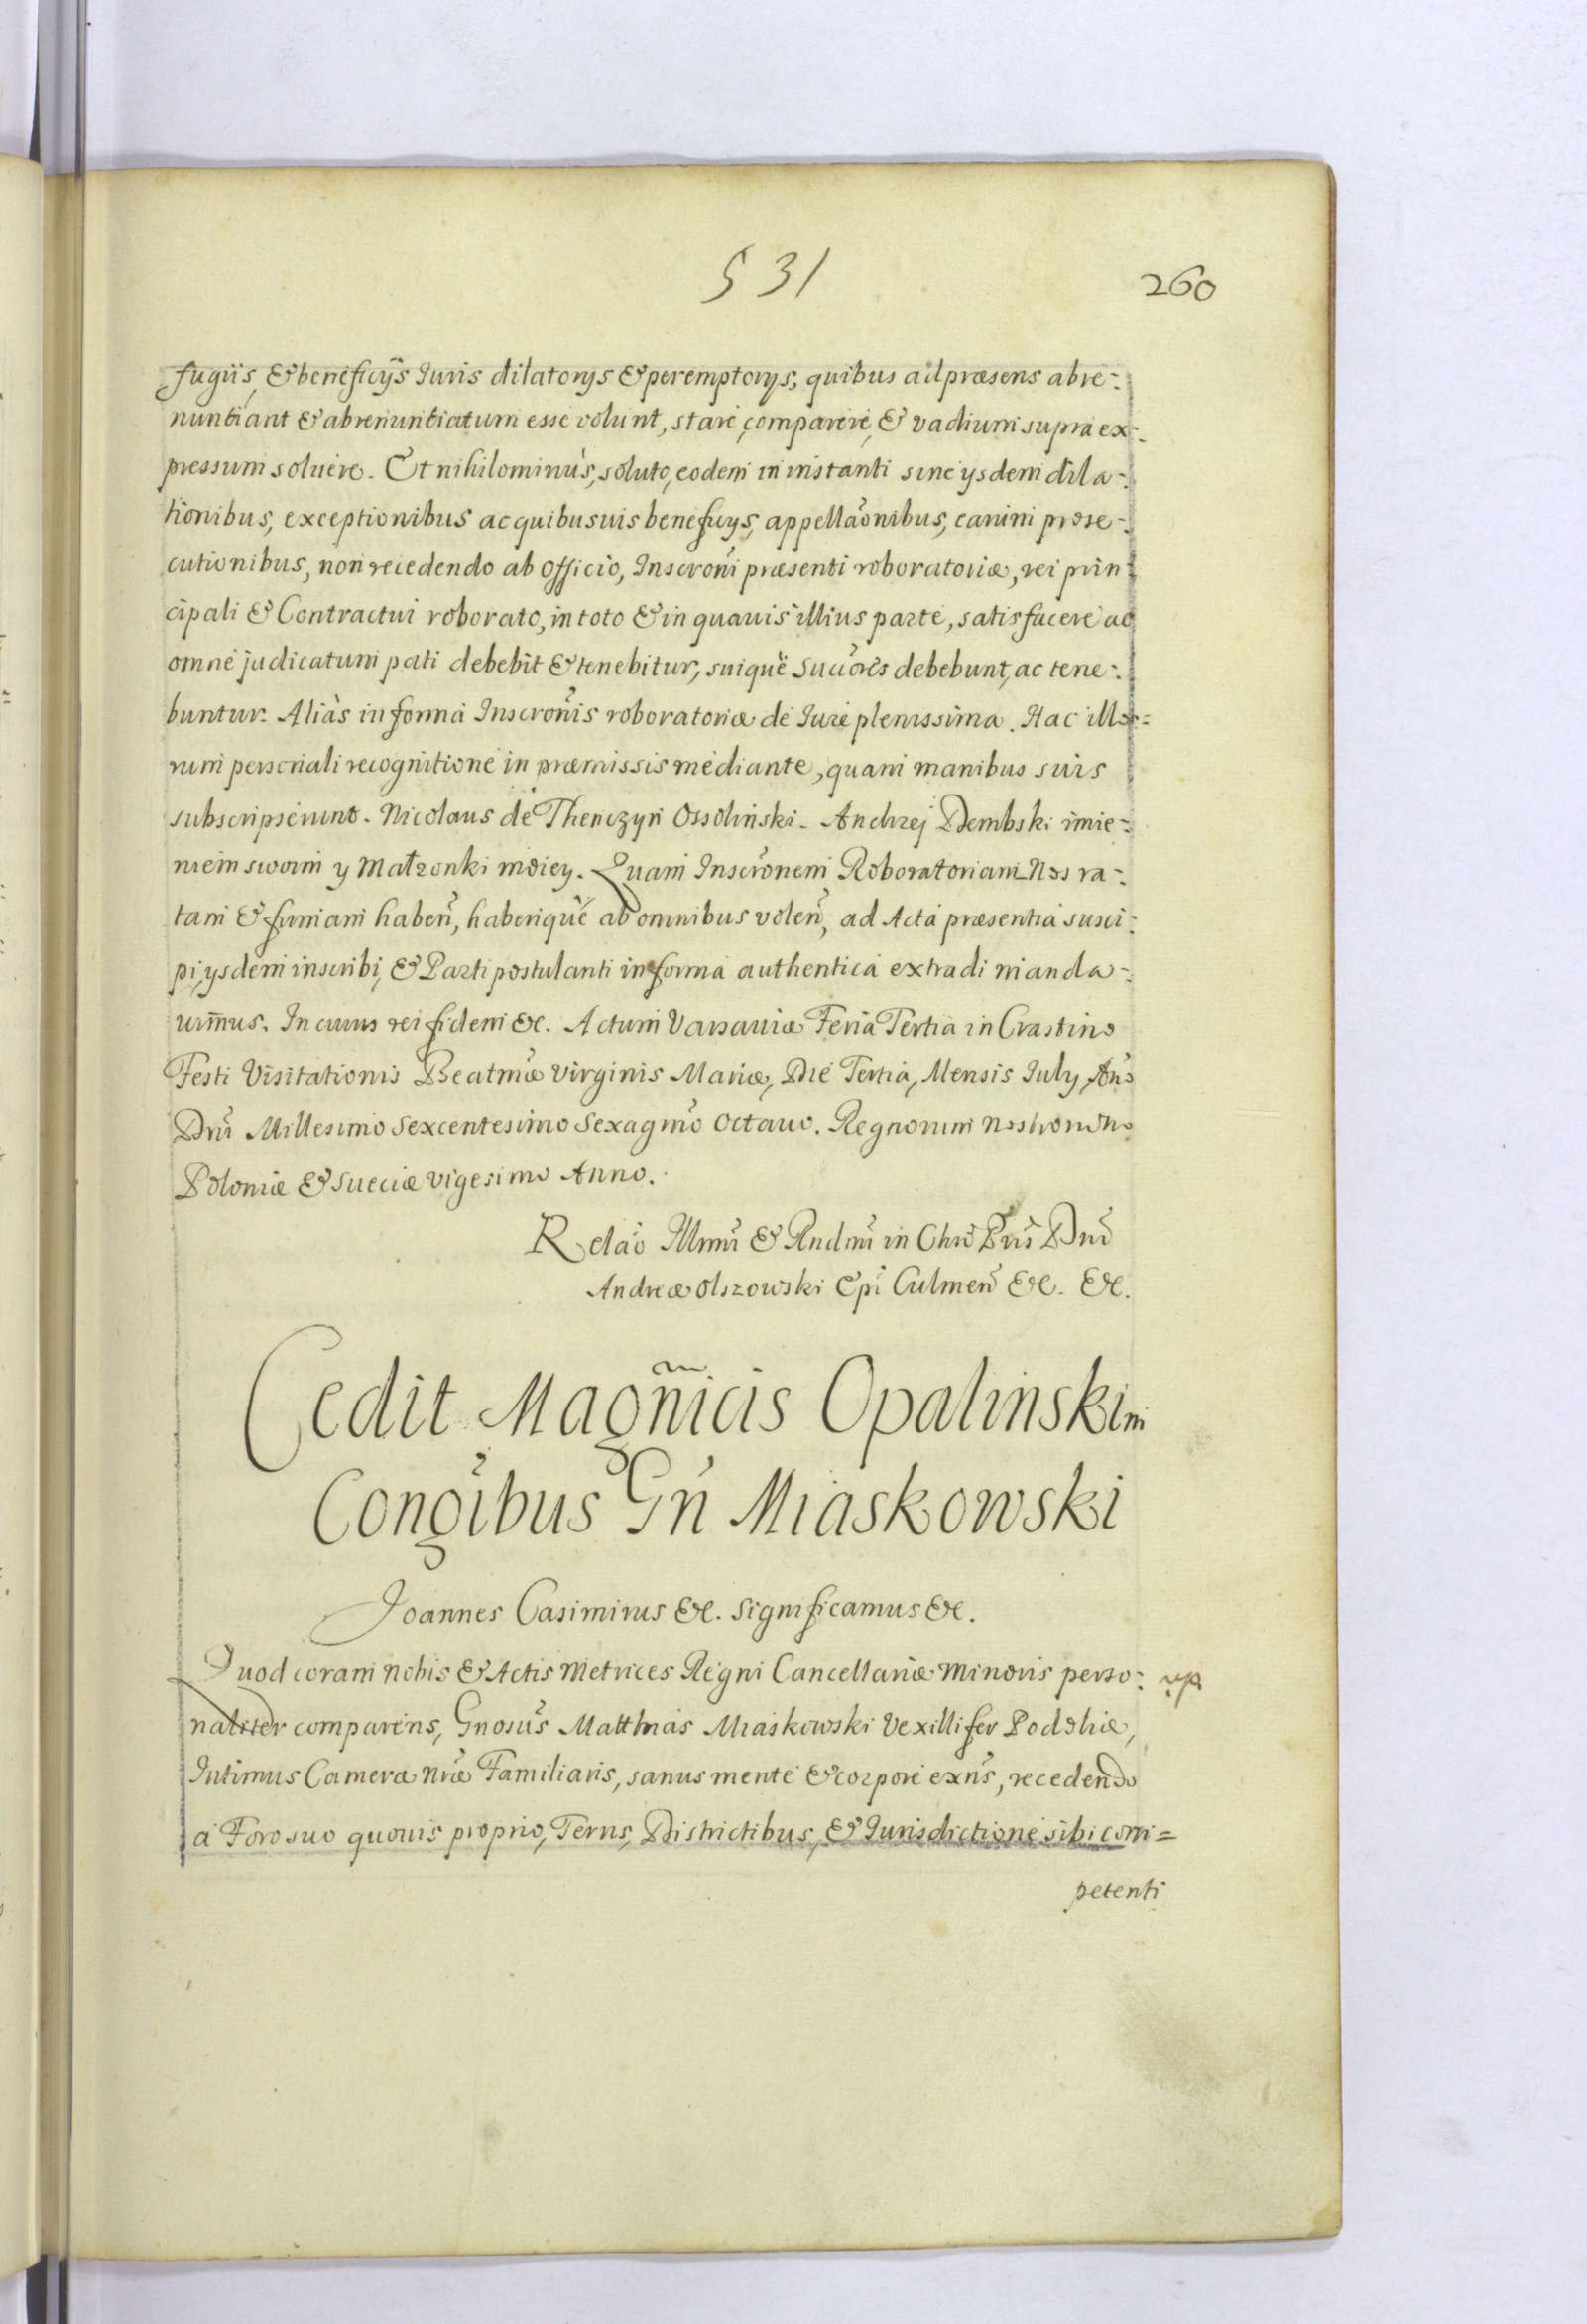 531
260
fugiis, & beneficijs Iuris dilatorijs & peremptorijs, quibus ad præsens abre-
nuntiant & abrenuntiatum esse volunt, stare, comparere, & vadium supra ex-
pressum soluere. Et nihilominus, soluto, eodem in instanti sine ijsdem dila-
tionibus, exceptionibus ac quibusuis beneficijs, appellaõnibus, earum prose-
cutionibus, non recedendo ab Officio, Inscroñi præsenti roboratoriæ, rei prin-
cipali & Contractui roborato, in toto & in quauis illius parte, satisfacere ac
omne judicatum pati debebit & tenebitur, suique Succores debebunt, ac tene-
buntur. Aliàs in forma Inscroñis roboratoriæ de Iure plenissima. Hac illo-
rum personali recognitione in præmissis mediante, quam manibus suis
subscripserunt. Nicolaus de Thenczyn Ossolinski. Andrzej Dembski imie-
niem swoim y Małzonki moiey. Quam Inscrõnem Roboratoriam Nos ra-
tam & firmam haben̄, haberique ab omnibus volen̄, ad Acta præsentia susci-
pi, ijsdem inscribi, & Parti postulanti in forma authentica extradi manda-
uim̄us. In cuius rei fidem &c. Actum Varsauiæ Feria Tertia in Crastino
Festi Visitationis Beatmæ Virginis Mariæ, Die Tertia, Mensis July, Ano
Dnī Millesimo Sexcentesimo Sexagmo Octauo. Regnorum Nostrorum
Poloniæ & Sueciæ vigesimo Anno.
Relaõ Illmi & Rndmi in Chro Pris Dni
Andreæ Olszowski Epi Culmen̄ &c. &c.
Cedit Magñicis Opalinskim
Congibus Gn̄ Miaskowski
Joannes Casimirus &c. Significamus &c.
Quod coram Nobis & Actis Metrices Regni Cancellariæ Minoris perso-
naliter comparens, Gnosus Matthias Miaskowski Vexillifer Podoliæ,
Intimus Cameræ nræ Familiaris, sanus mente & corpore exns, recedendo
a Foro suo quouis proprio, Terris, Districtibus, & Iurisdictione sibi com=
petenti